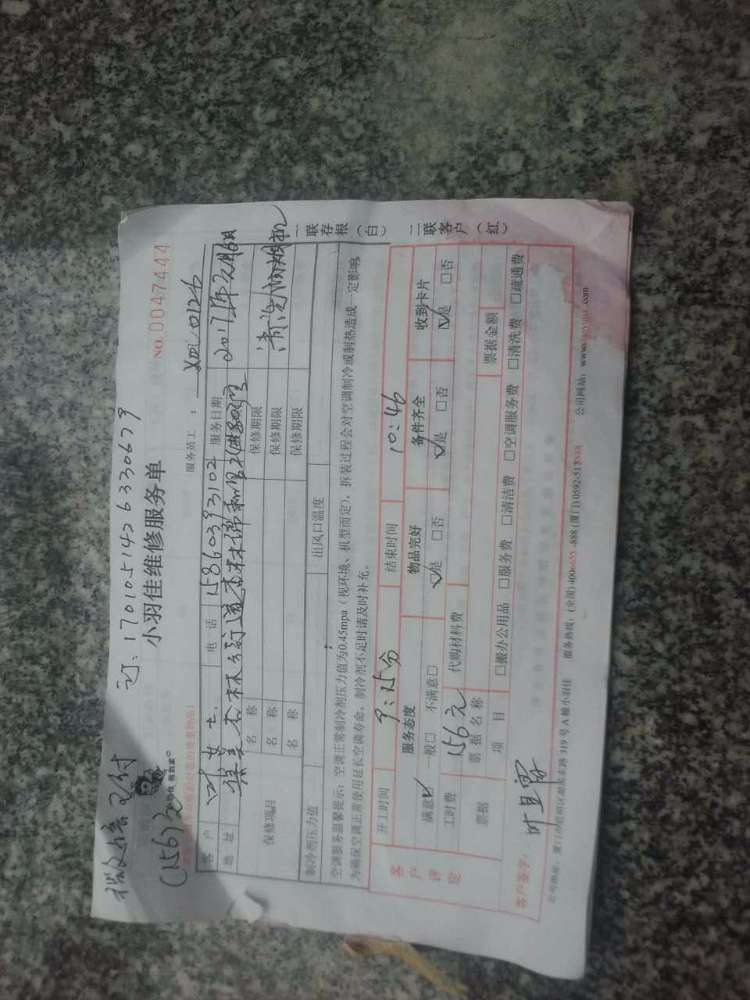 微信已付
订：1701051426330679
(156元)
小羽佳维修服务单
NO.0047444
服务员工：Xmi0126
客户 叶女士 电话 15860393102 服务日期 2017年元月6日
地址 集美杏林
保修项目 名称 保修期限 清洗
名称 保修期限
名称 保修期限
制冷剂压力值 出风口温度
空调服务温馨提示：空调正常制冷剂压力值为0.45mpa（视环境、机型而定），拆装过程会对空调制冷或制热造成一定影响
为确保空调正常使用延长空调寿命，制冷剂不足时请及时补充。
一联存根（白） 二联客户（红）
客户评定
开工时间 9:25分 结束时间 10:46
服务态度 物品完好 备件齐全 收到卡片
满意☑ 一般□ 不满意□ ☑是 □否 ☑是 □否 ☑是 □否
工时费 156元 代购材料费
票据 票据名称 票据金额
项目 □搬办公用品 □服务费 □清洁费 □空调服务费 □清洗费 □疏通费
客户签字：
公司地址：厦门市 319号A幢小羽佳 服务热线：(全国)400 -888 (厦门)0592-513 公司网站：www. .com